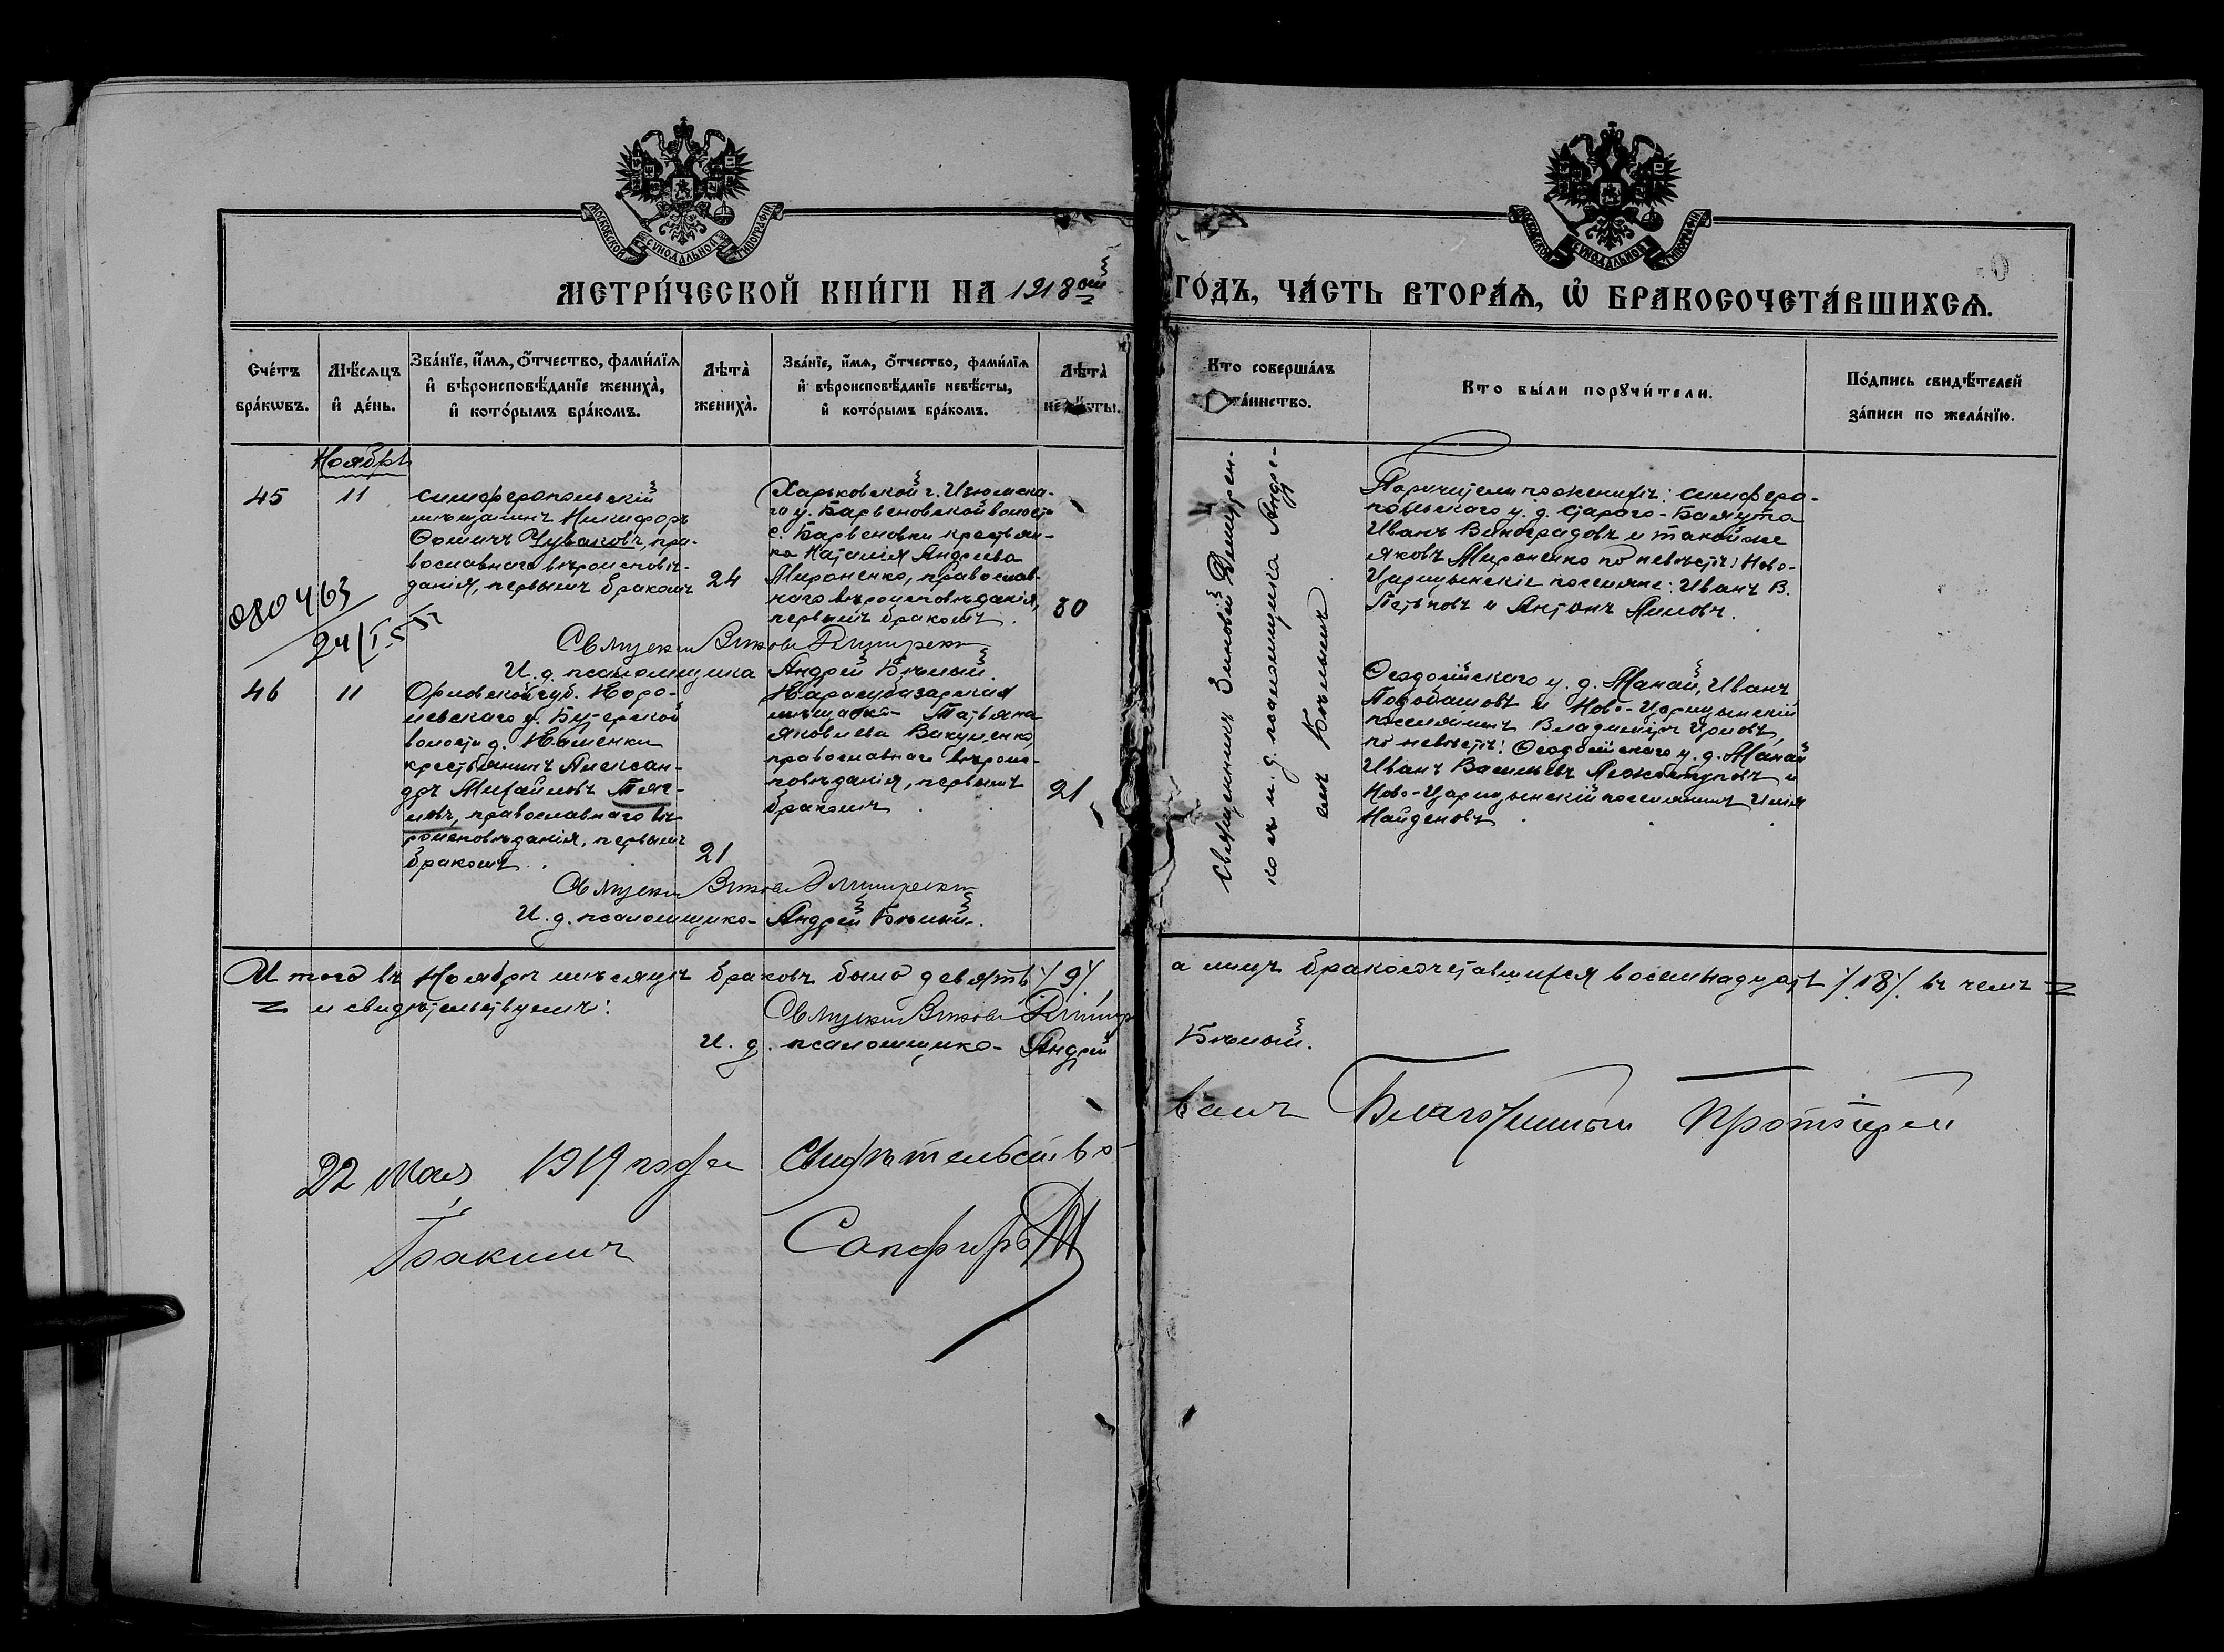 МОСКОВСКОЙ СѴНОДАЛЬНОЙ ТИПОГРАФІИ
МОСКОВСКОЙ СѴНОДАЛЬНОЙ ТИПОГРАФІИ
МЕТРИ́ЧЕСКОЙ КНИ́ГИ НА 1918ый ГО́ДЪ, ЧА́СТЬ ВТОРА́Ѧ, Ѿ БРАКОСОЧЕТА́ВШИХСѦ.
Сче́тъ
бра́кѡвъ.
Мѣ́сѧцъ
и҆ де́нь.
Зва́нїе, и҆́мѧ, ѻ҆́тчество, фами́лїѧ
и҆ вѣроисповѣ́данїе жениха̀,
и҆ кото́рымъ бра́комъ.
Лѣ́та̀
жениха̀.
Зва́нїе, и҆́мѧ, ѻ҆́тчество, фами́лїѧ
и҆ вѣроисповѣ́данїе невѣ́сты,
и҆ кото́рымъ бра́комъ.
Лѣ́та̀
невѣ́сты.
Кто соверша́лъ
та́инство.
Кто бы́ли порꙋчи́тели.
По́дпись свидѣ́телей
за́писи по жела́нїю.
Ноябрь
45
11
Симферопольскій
мѣщанинъ Никифоръ
Ѳомичъ Чуваковъ, пра-
вославнаго вѣроисповѣ-
данія, первымъ бракомъ
24
Харьковской г. Изюмска-
го у. Барвеновской волости
с. Барвеновки крестьян-
ка Наталія Андреева
Мироненко, православ-
наго вѣроисповѣданія,
первымъ бракомъ.
30
Священникъ Зиновій Дмитрен-
ко съ и. д. псаломщика Андре-
емъ Бѣлымъ
Поручители по женихѣ: Симферо-
польскаго у. д. Стараго-
Иванъ Виноградовъ и такой же
Яковъ Мироненко по невѣстѣ: Ново-
Царицынскіе поселяне: Иванъ В.
Петковъ и Антонъ
463
24/I
Священникъ Зиновій Дмитренко
И. д. псаломщика Андрей Бѣлый.
46
11
Орловской губ.
у.
волости д. Каменки
крестьянинъ Алексан-
дръ Михайловъ
православнаго вѣ-
роисповѣданія, первымъ
бракомъ.
21
Карасубазарская
мѣщанка Татьяна
Яковлева Вакуленко,
православнаго вѣроис-
повѣданія, первымъ
бракомъ.
21
Ѳеодосійскаго у. д. Манай, Иванъ
и Ново-Царицынскій
поселянинъ Владиміръ
по невѣстѣ: Ѳеодосійскаго у. д. Манай
Иванъ Васильевъ и
Ново-Царицынскій поселянинъ Илія
Найденовъ
Священникъ Зиновій Дмитренко
И. д. псаломщика Андрей Бѣлый.
Итого въ Ноябрѣ мѣсяцѣ браковъ было девять /9/, а лицъ бракосочетавшихся восемнадцать /18/. въ чемъ
и свидѣтельствуемъ:
Священникъ Зиновій Дмитр
И. д. псаломщика Андрей Бѣлый.
22 Мая 1919 года Свидѣтельство-
валъ Благочинный Протоіерей
Іоакимъ Сапфировъ